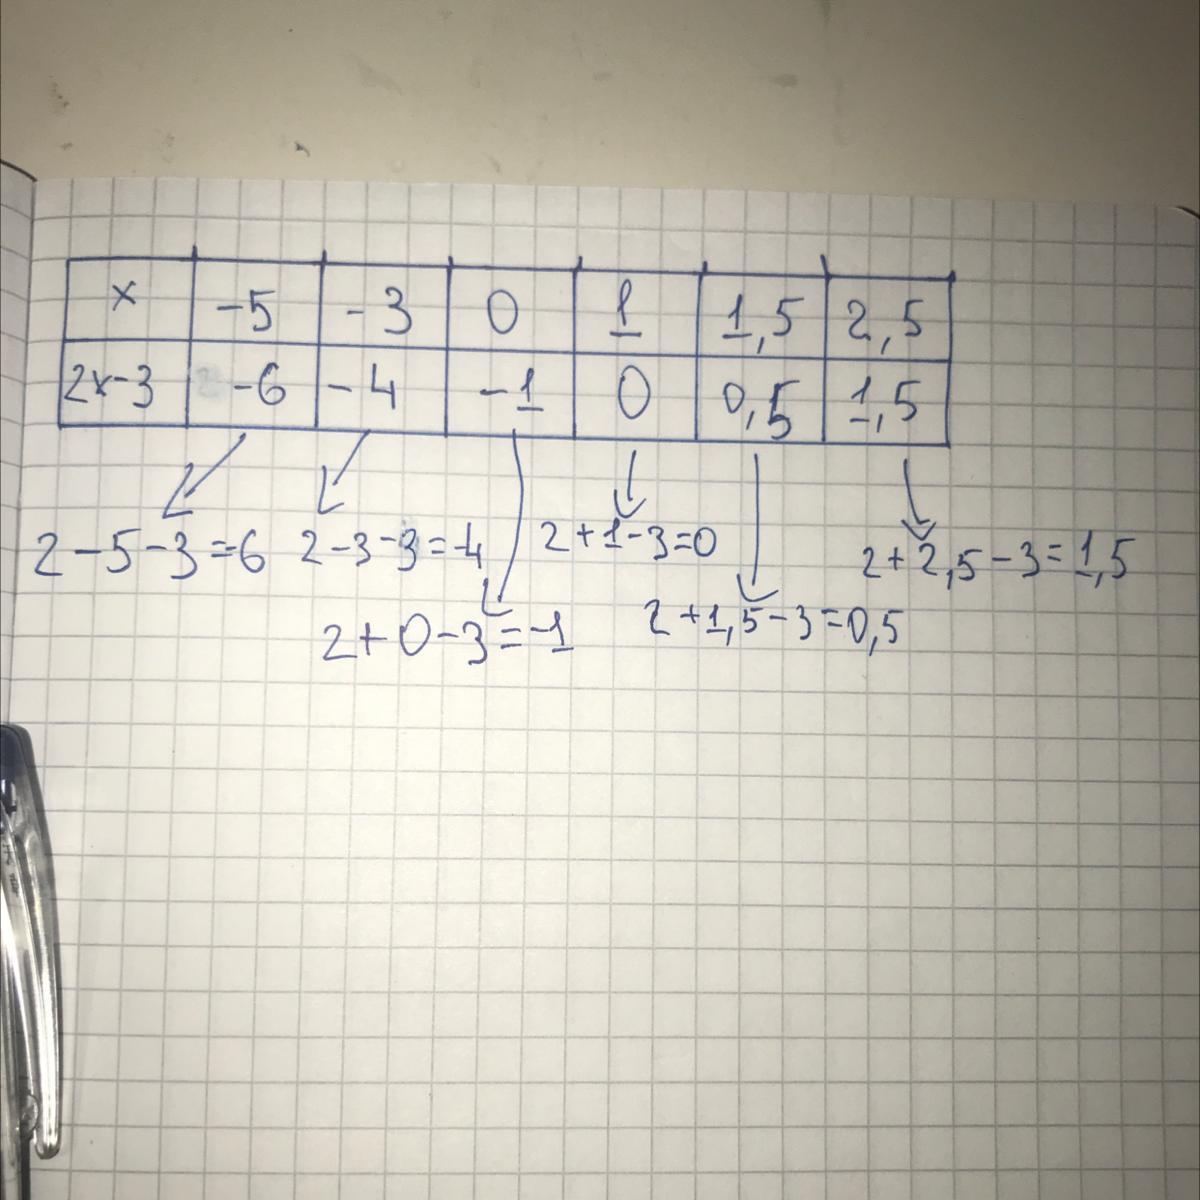 x -5 -3 0 1 1,5 2,5
2x-3 -6 -4 -1 0 0,5 1,5
2-5-3=-6 2-3-3=-4 2+1-3=0 2+2,5-3=1,5
2+0-3=-1 2+1,5-3=0,5